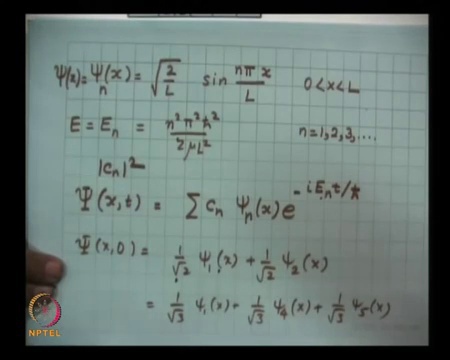 ψ(x) = ψₙ(x) = √(2/L) sin nπx/L   0 < x < L
E = Eₙ = n²π²ħ²/2μL²   n = 1, 2, 3, ....
|cₙ|²
Ψ(x,t) = Σ cₙ ψₙ(x) e^(-iEₙt/ħ)
Ψ(x,0) = 1/√2 ψ₁(x) + 1/√2 ψ₂(x)
= 1/√3 ψ₁(x) + 1/√3 ψ₄(x) + 1/√3 ψ₅(x)
NPTEL